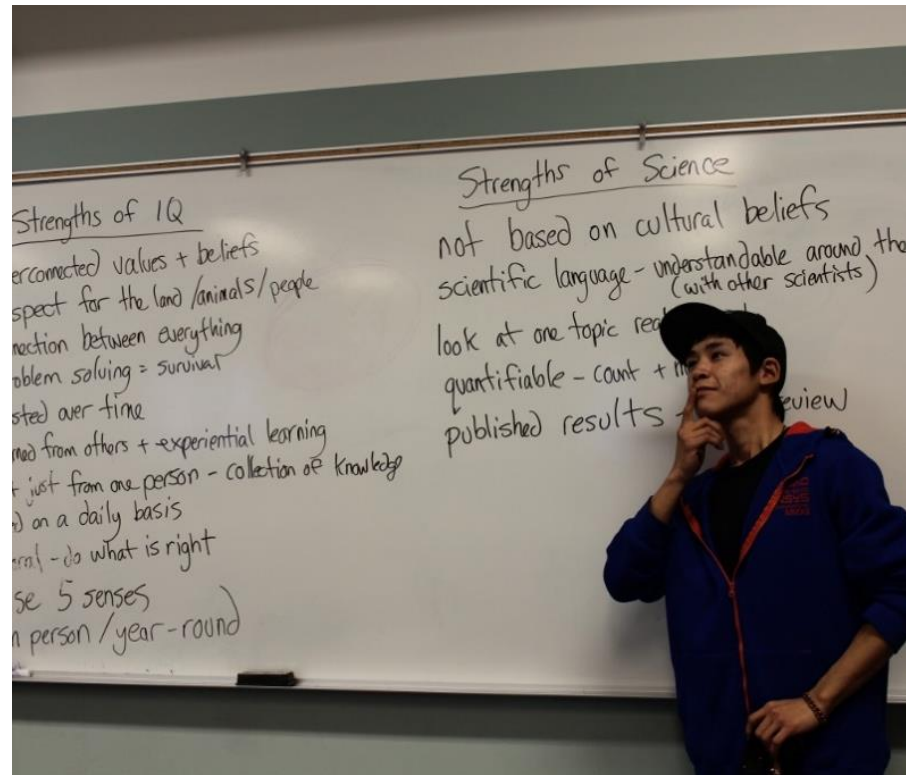 Strengths of IQ
erconnected values + beliefs
spect for the land/animals/people
nection between everything
oblem solving = survival
sted over time
ned from others + experiential learning
just from one person - collection of knowledge
on a daily basis
- do what is right
se 5 senses
n person / year-round
Strengths of Science
not based on cultural beliefs
scientific language - understandable around the
(with other scientists)
look at one topic rea
quantifiable - count +
published results - eview